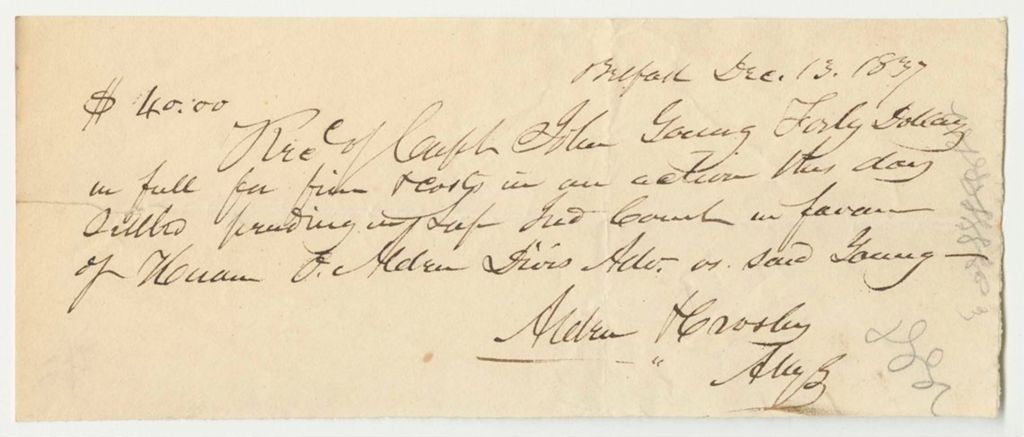 Belfast Dec. 13. 1837
$ 40.00
Recd of Capt John Young Forty Dollars
in full for fine & costs in an action this day
settled pending in Sup Jud Court in favour
of Hiram O. Alden Divis Adv. vs. said Young—
Alden & Crosby
" Attys